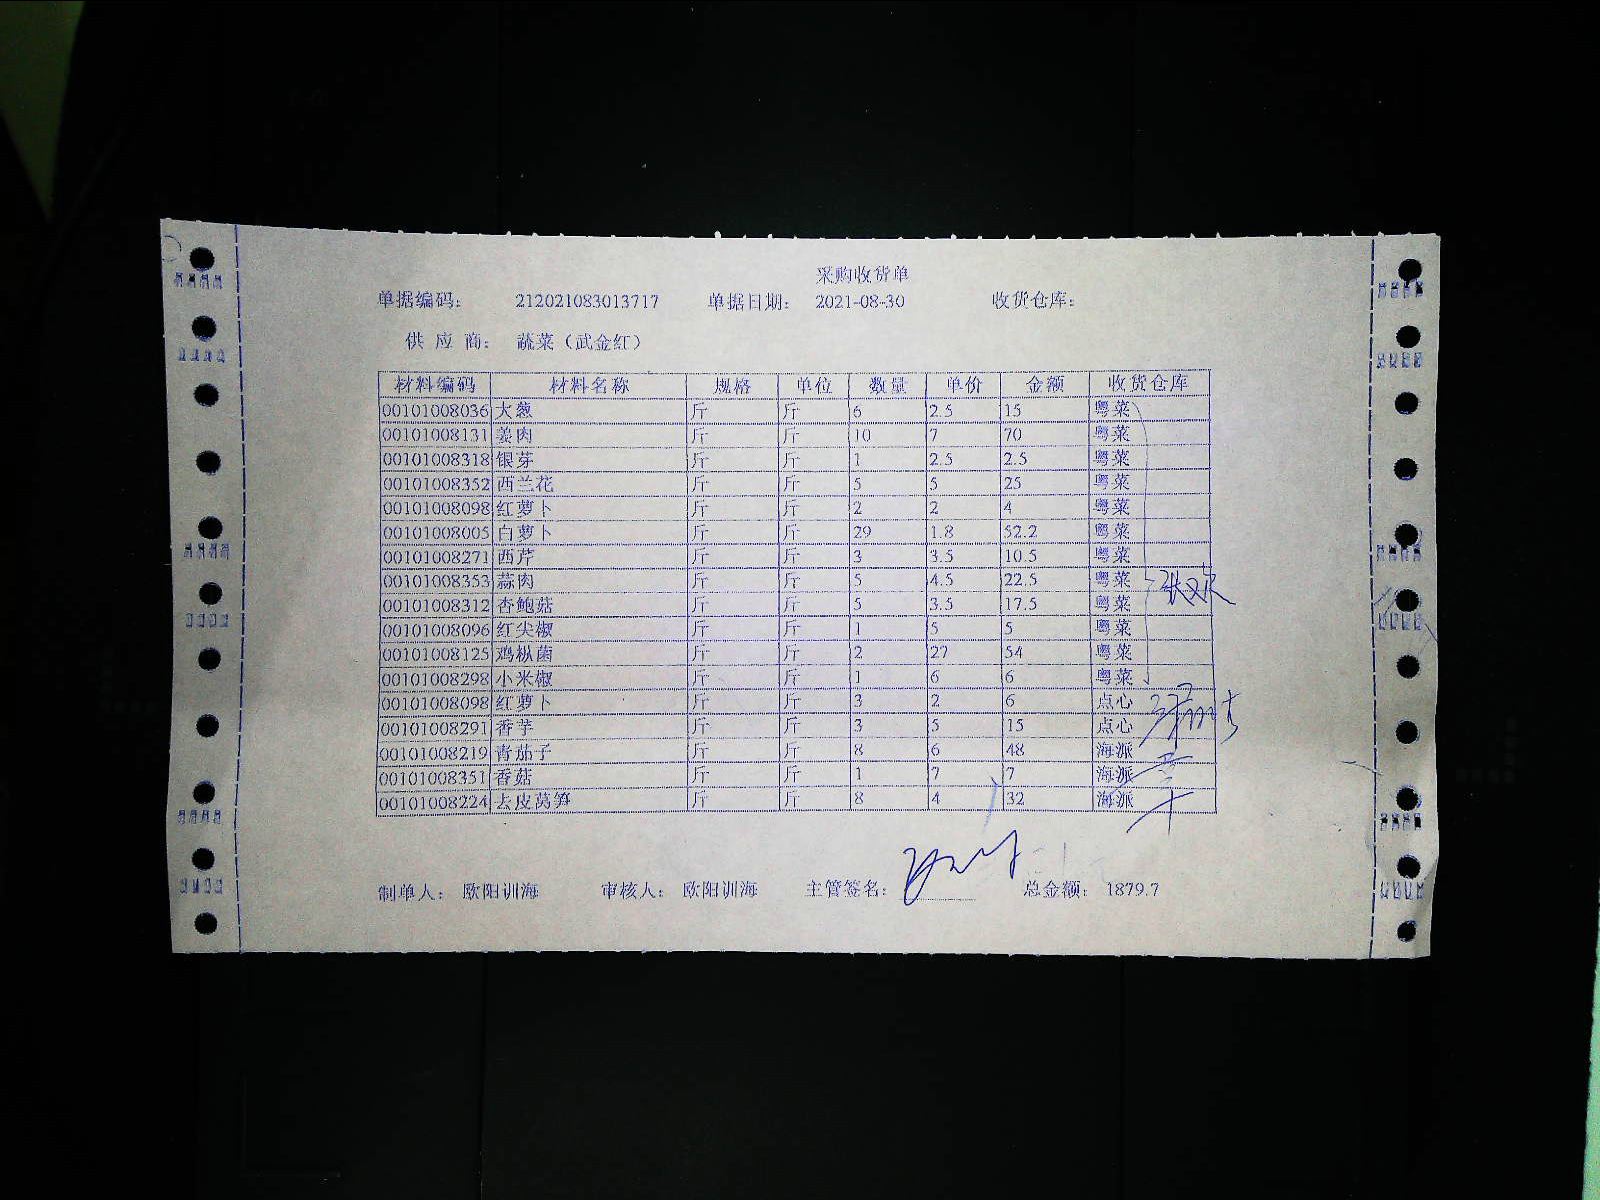 采购收货单
单据编码： 212021083013717 单据日期： 2021-08-30 收货仓库：
供 应 商： 蔬菜（武金红）
材料编码 材料名称 规格 单位 数量 单价 金额 收货仓库
00101008036 大葱 斤 斤 6 2.5 15 粤菜
00101008131 姜肉 斤 斤 10 7 70 粤菜
00101008318 银芽 斤 斤 1 2.5 2.5 粤菜
00101008352 西兰花 斤 斤 5 5 25 粤菜
00101008098 红萝卜 斤 斤 2 2 4 粤菜
00101008005 白萝卜 斤 斤 29 1.8 52.2 粤菜
00101008271 西芹 斤 斤 3 3.5 10.5 粤菜
00101008353 蒜肉 斤 斤 5 4.5 22.5 粤菜
00101008312 杏鲍菇 斤 斤 5 3.5 17.5 粤菜
00101008096 红尖椒 斤 斤 1 5 5 粤菜
00101008125 鸡枞菌 斤 斤 2 27 54 粤菜
00101008298 小米椒 斤 斤 1 6 6 粤菜
00101008098 红萝卜 斤 斤 3 2 6 点心
00101008291 香芋 斤 斤 3 5 15 点心
00101008219 青茄子 斤 斤 8 6 48 海派
00101008351 香菇 斤 斤 1 7 7 海派
00101008224 去皮莴笋 斤 斤 8 4 32 海派
制单人： 欧阳训海 审核人： 欧阳训海 主管签名： 总金额： 1879.7